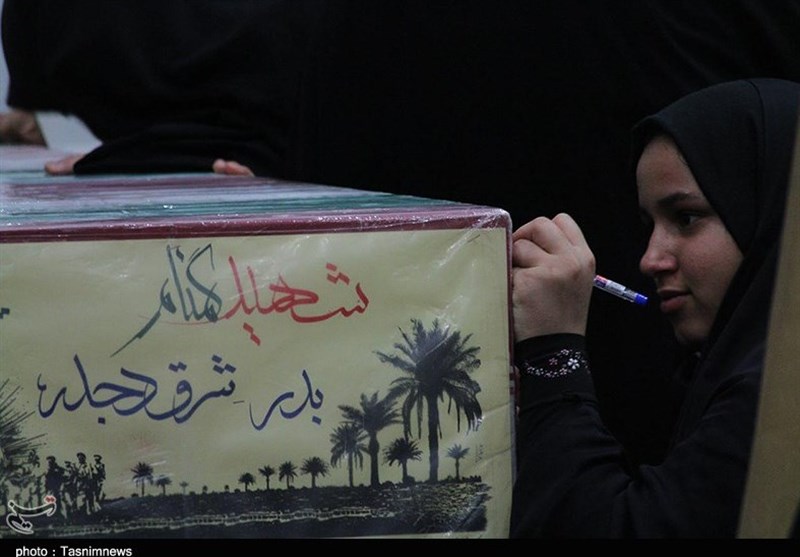 شهید گمنام
بدر، شرق دجله
تسنیم
photo : Tasnimnews